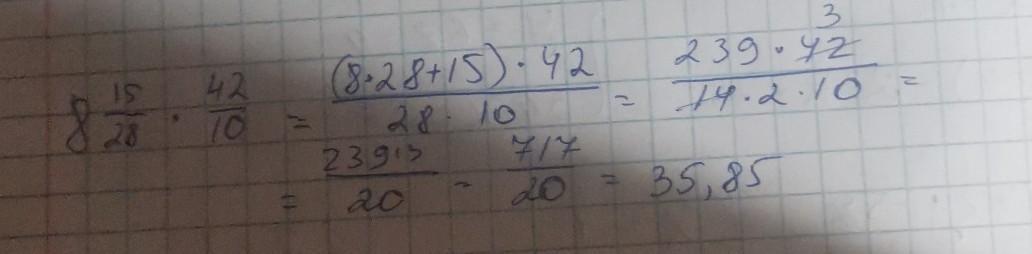 8 15/28 · 42/10 = (8·28+15)·42 / 28·10 = 239·42 3 / 14·2·10 =
= 239·3/20 - 717/20 = 35,85